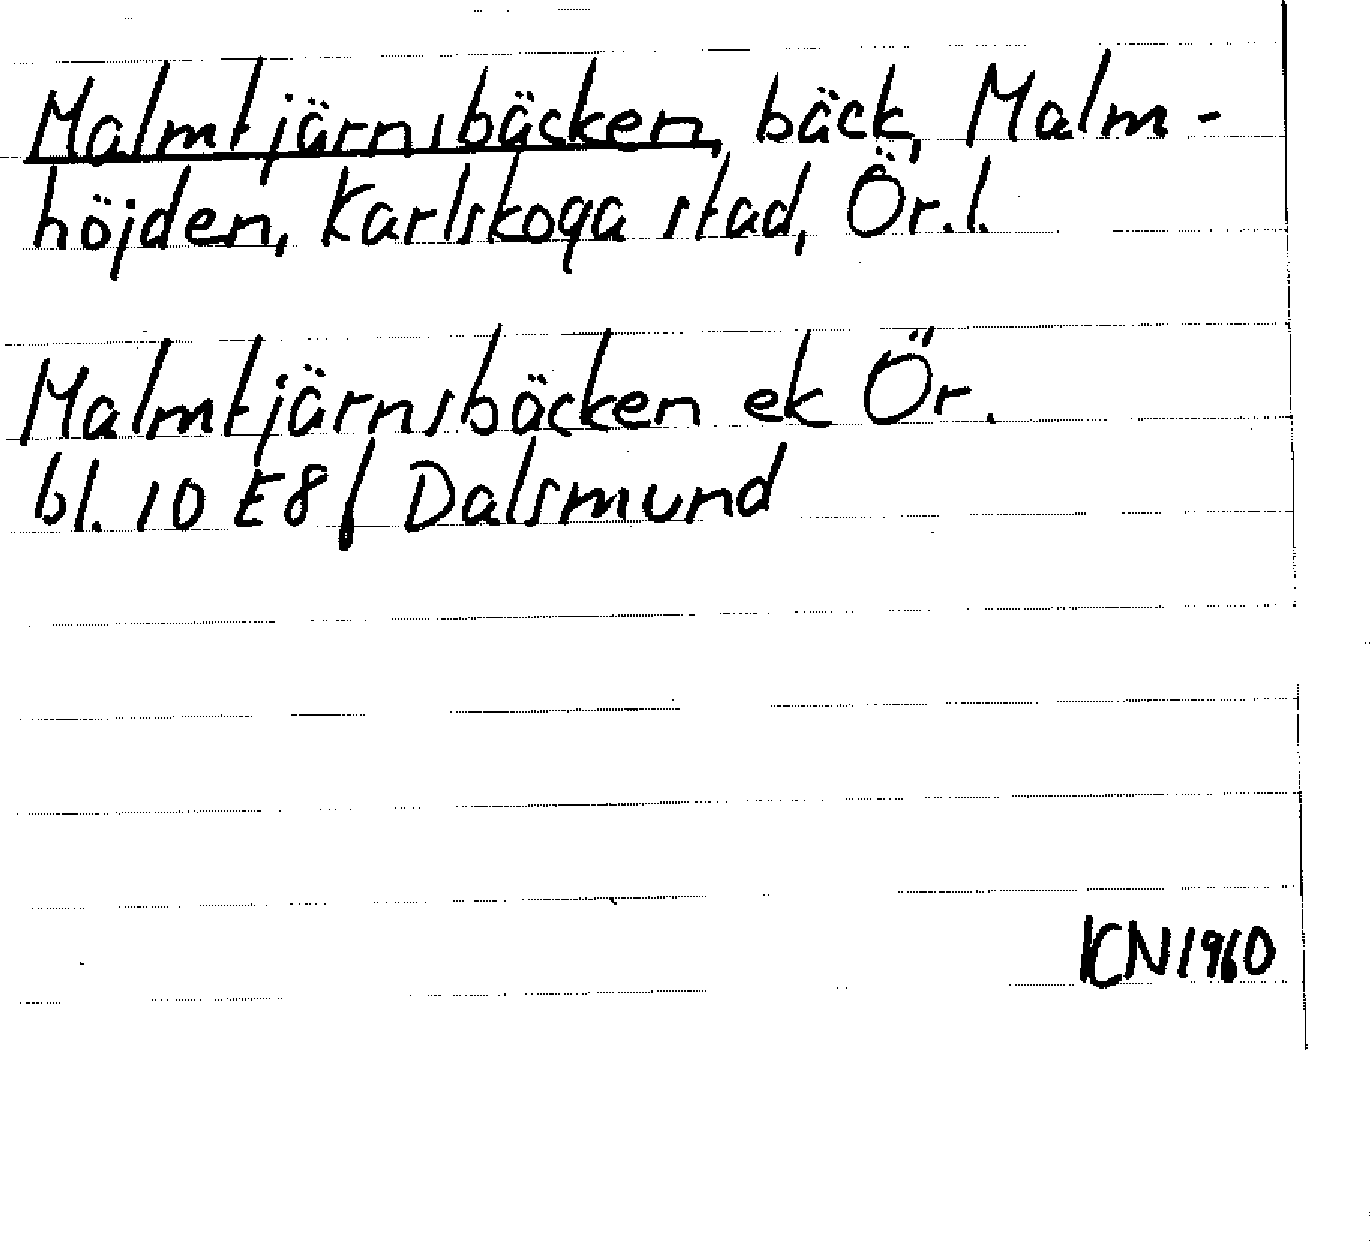 Malmtjärnsbäcken, bäck, Malm-
höjden, Karlskoga stad, Ör.l.
Malmtjärnsbäcken ek Ör.
bl. 10 E8f Dalsmund
KN1960